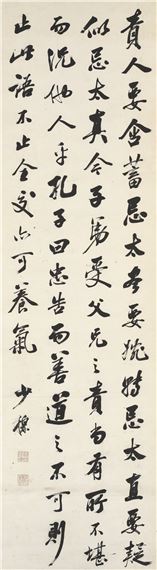 責人要含蓄忌太盡要婉轉忌太直要疑
似忌太真今子弟受父兄之責尚有所不堪
而況他人乎孔子曰忠告而善道之不可則
止此語不止全交亦可養氣 少穆